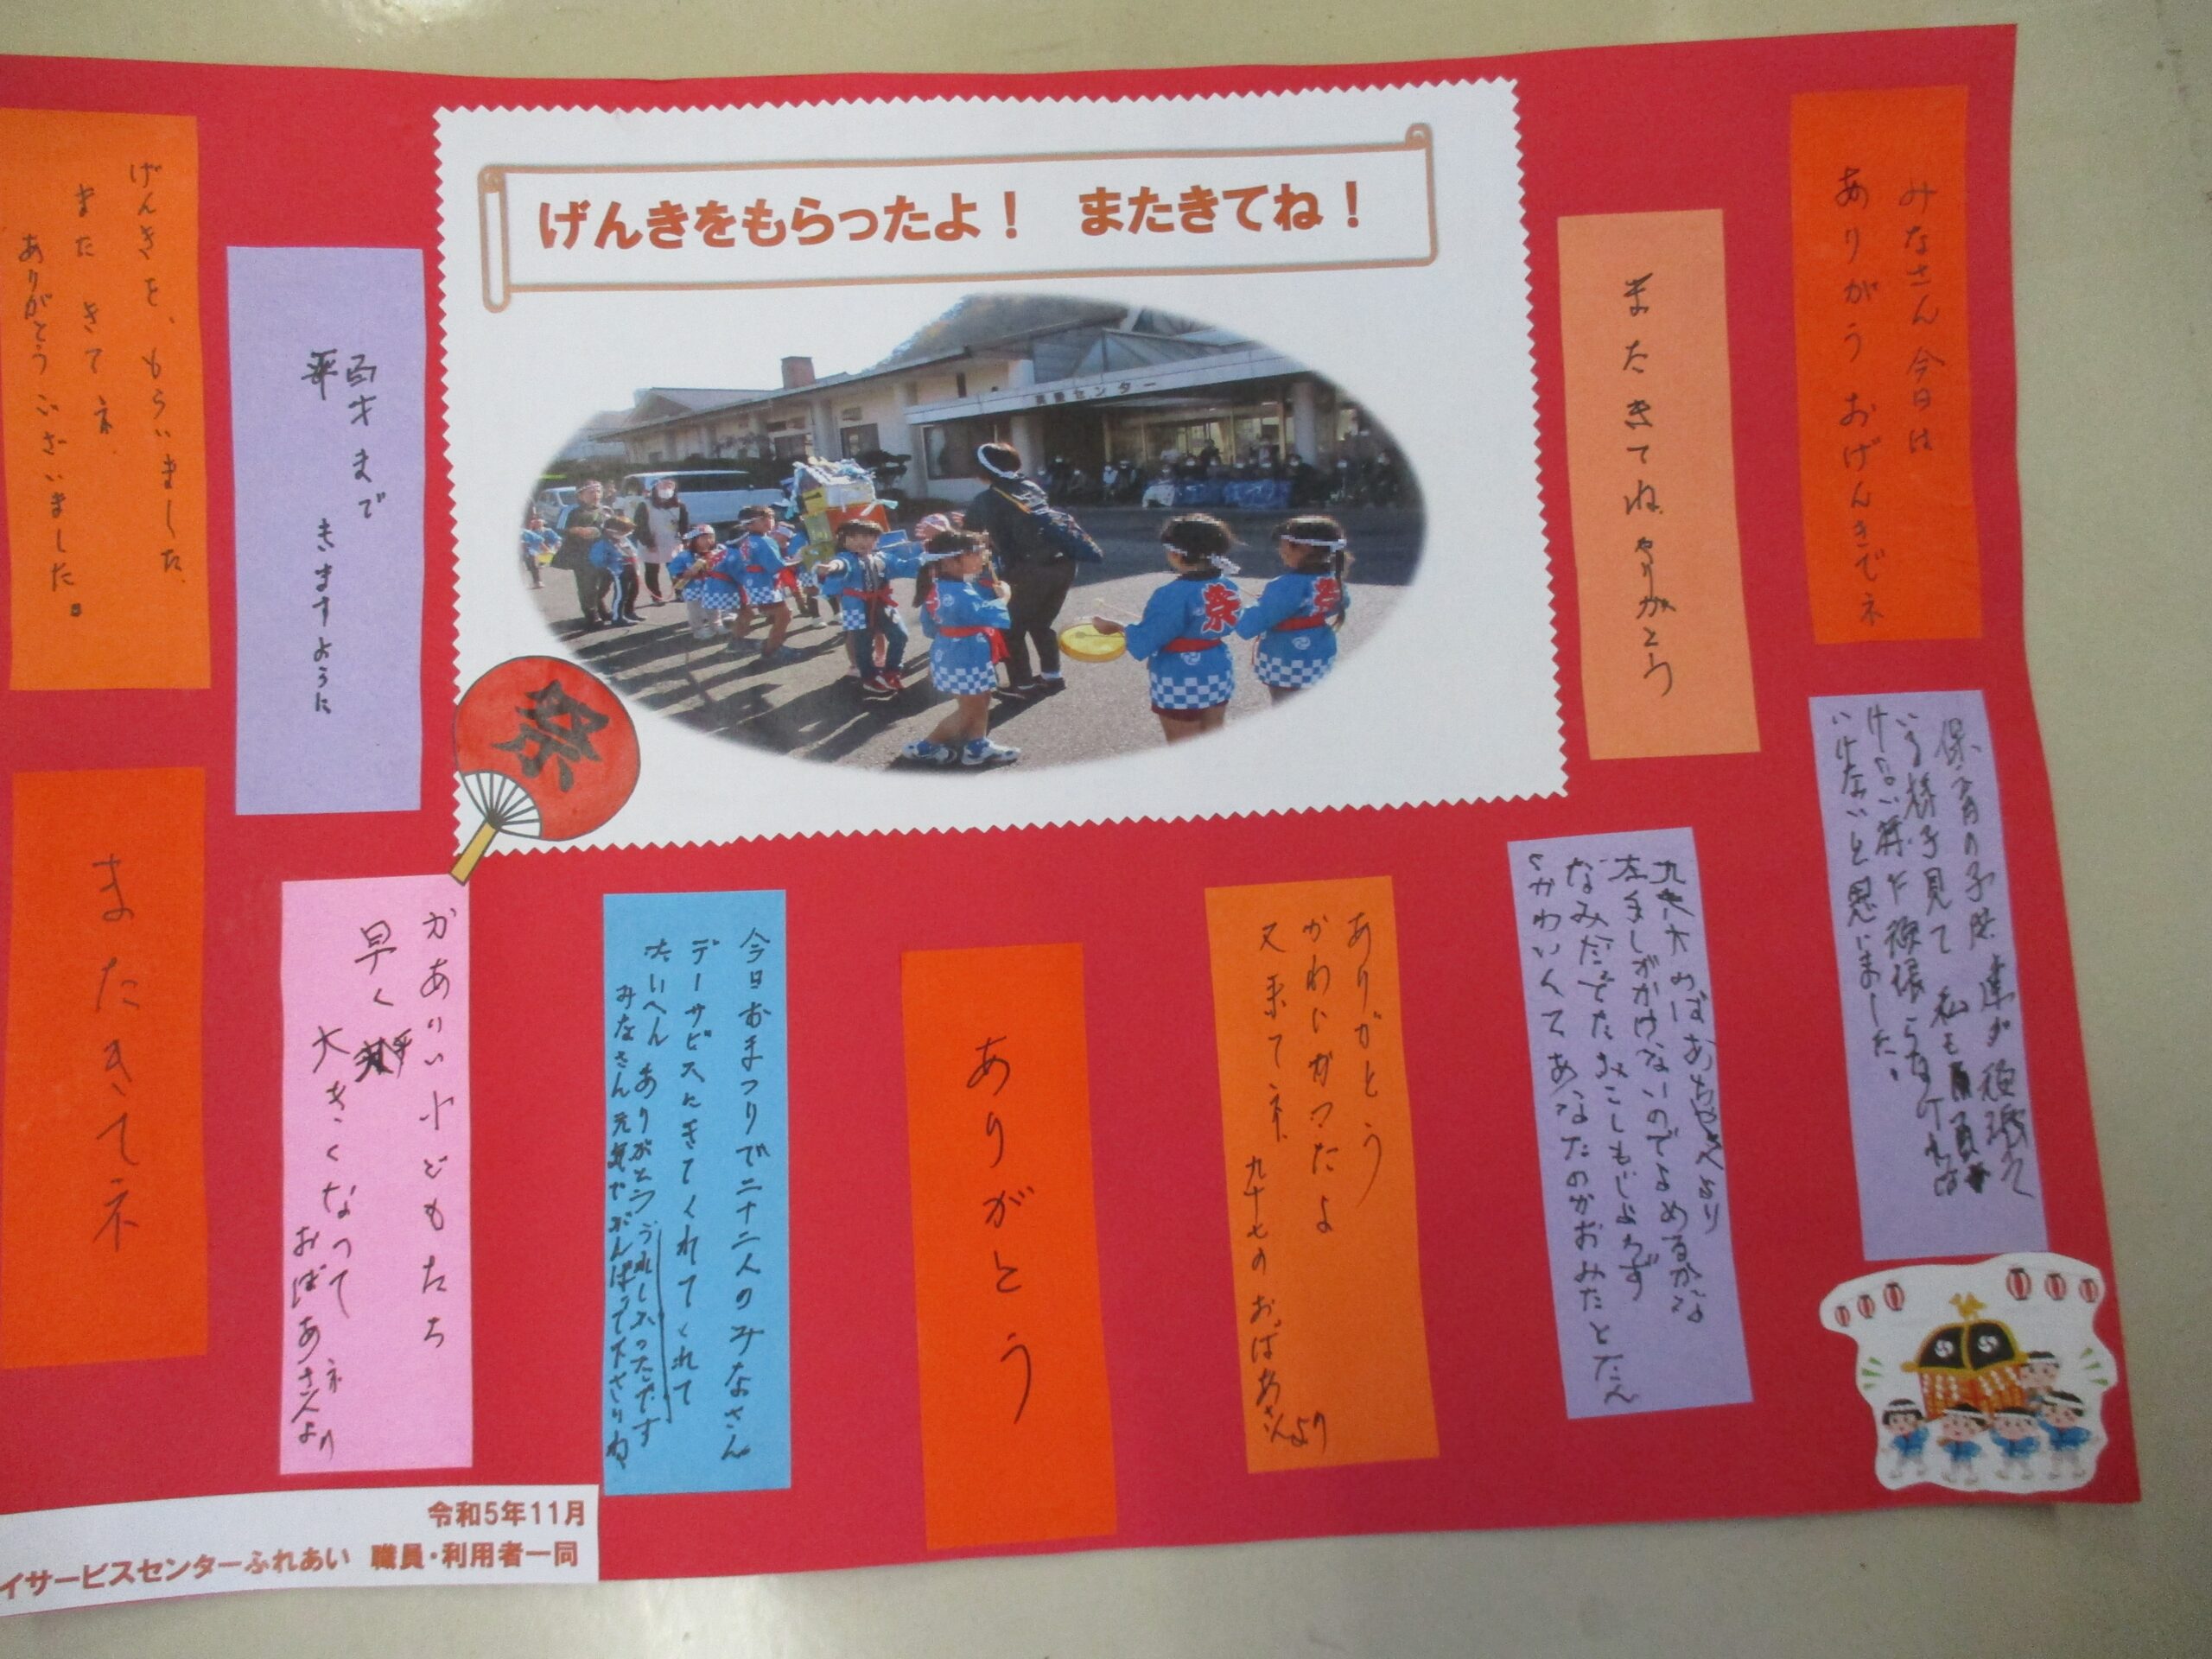 げんきをもらったよ！　またきてね！
センター
祭
祭
みなさん今日は
ありがうおげんきでネ
またきてね
ありがとう
保育の子供達が頑張って
いる様子見て私も
いけないと思いました。
左手しがかけないのでよめるかな
なみだでたみこしもじょうず
かわいくてあなたのかおみたとたん
ありがとう
かわいがつたよ
又来てネ 九十七のおばあさんより
ありがとう
今日おまつりで二十二人のみなさん
デーサビスにきてくれてくれて
たいへんありがとううれしかったです
みなさん元気でがんばって下さいね
かありい小どもたち
早く
大きくなってネ
おばあさんより
百才まで
きますように
げんきを、もらいました
またきてネ
ありがとうございました。
またきてネ
令和5年11月
イサービスセンターふれあい 職員・利用者一同